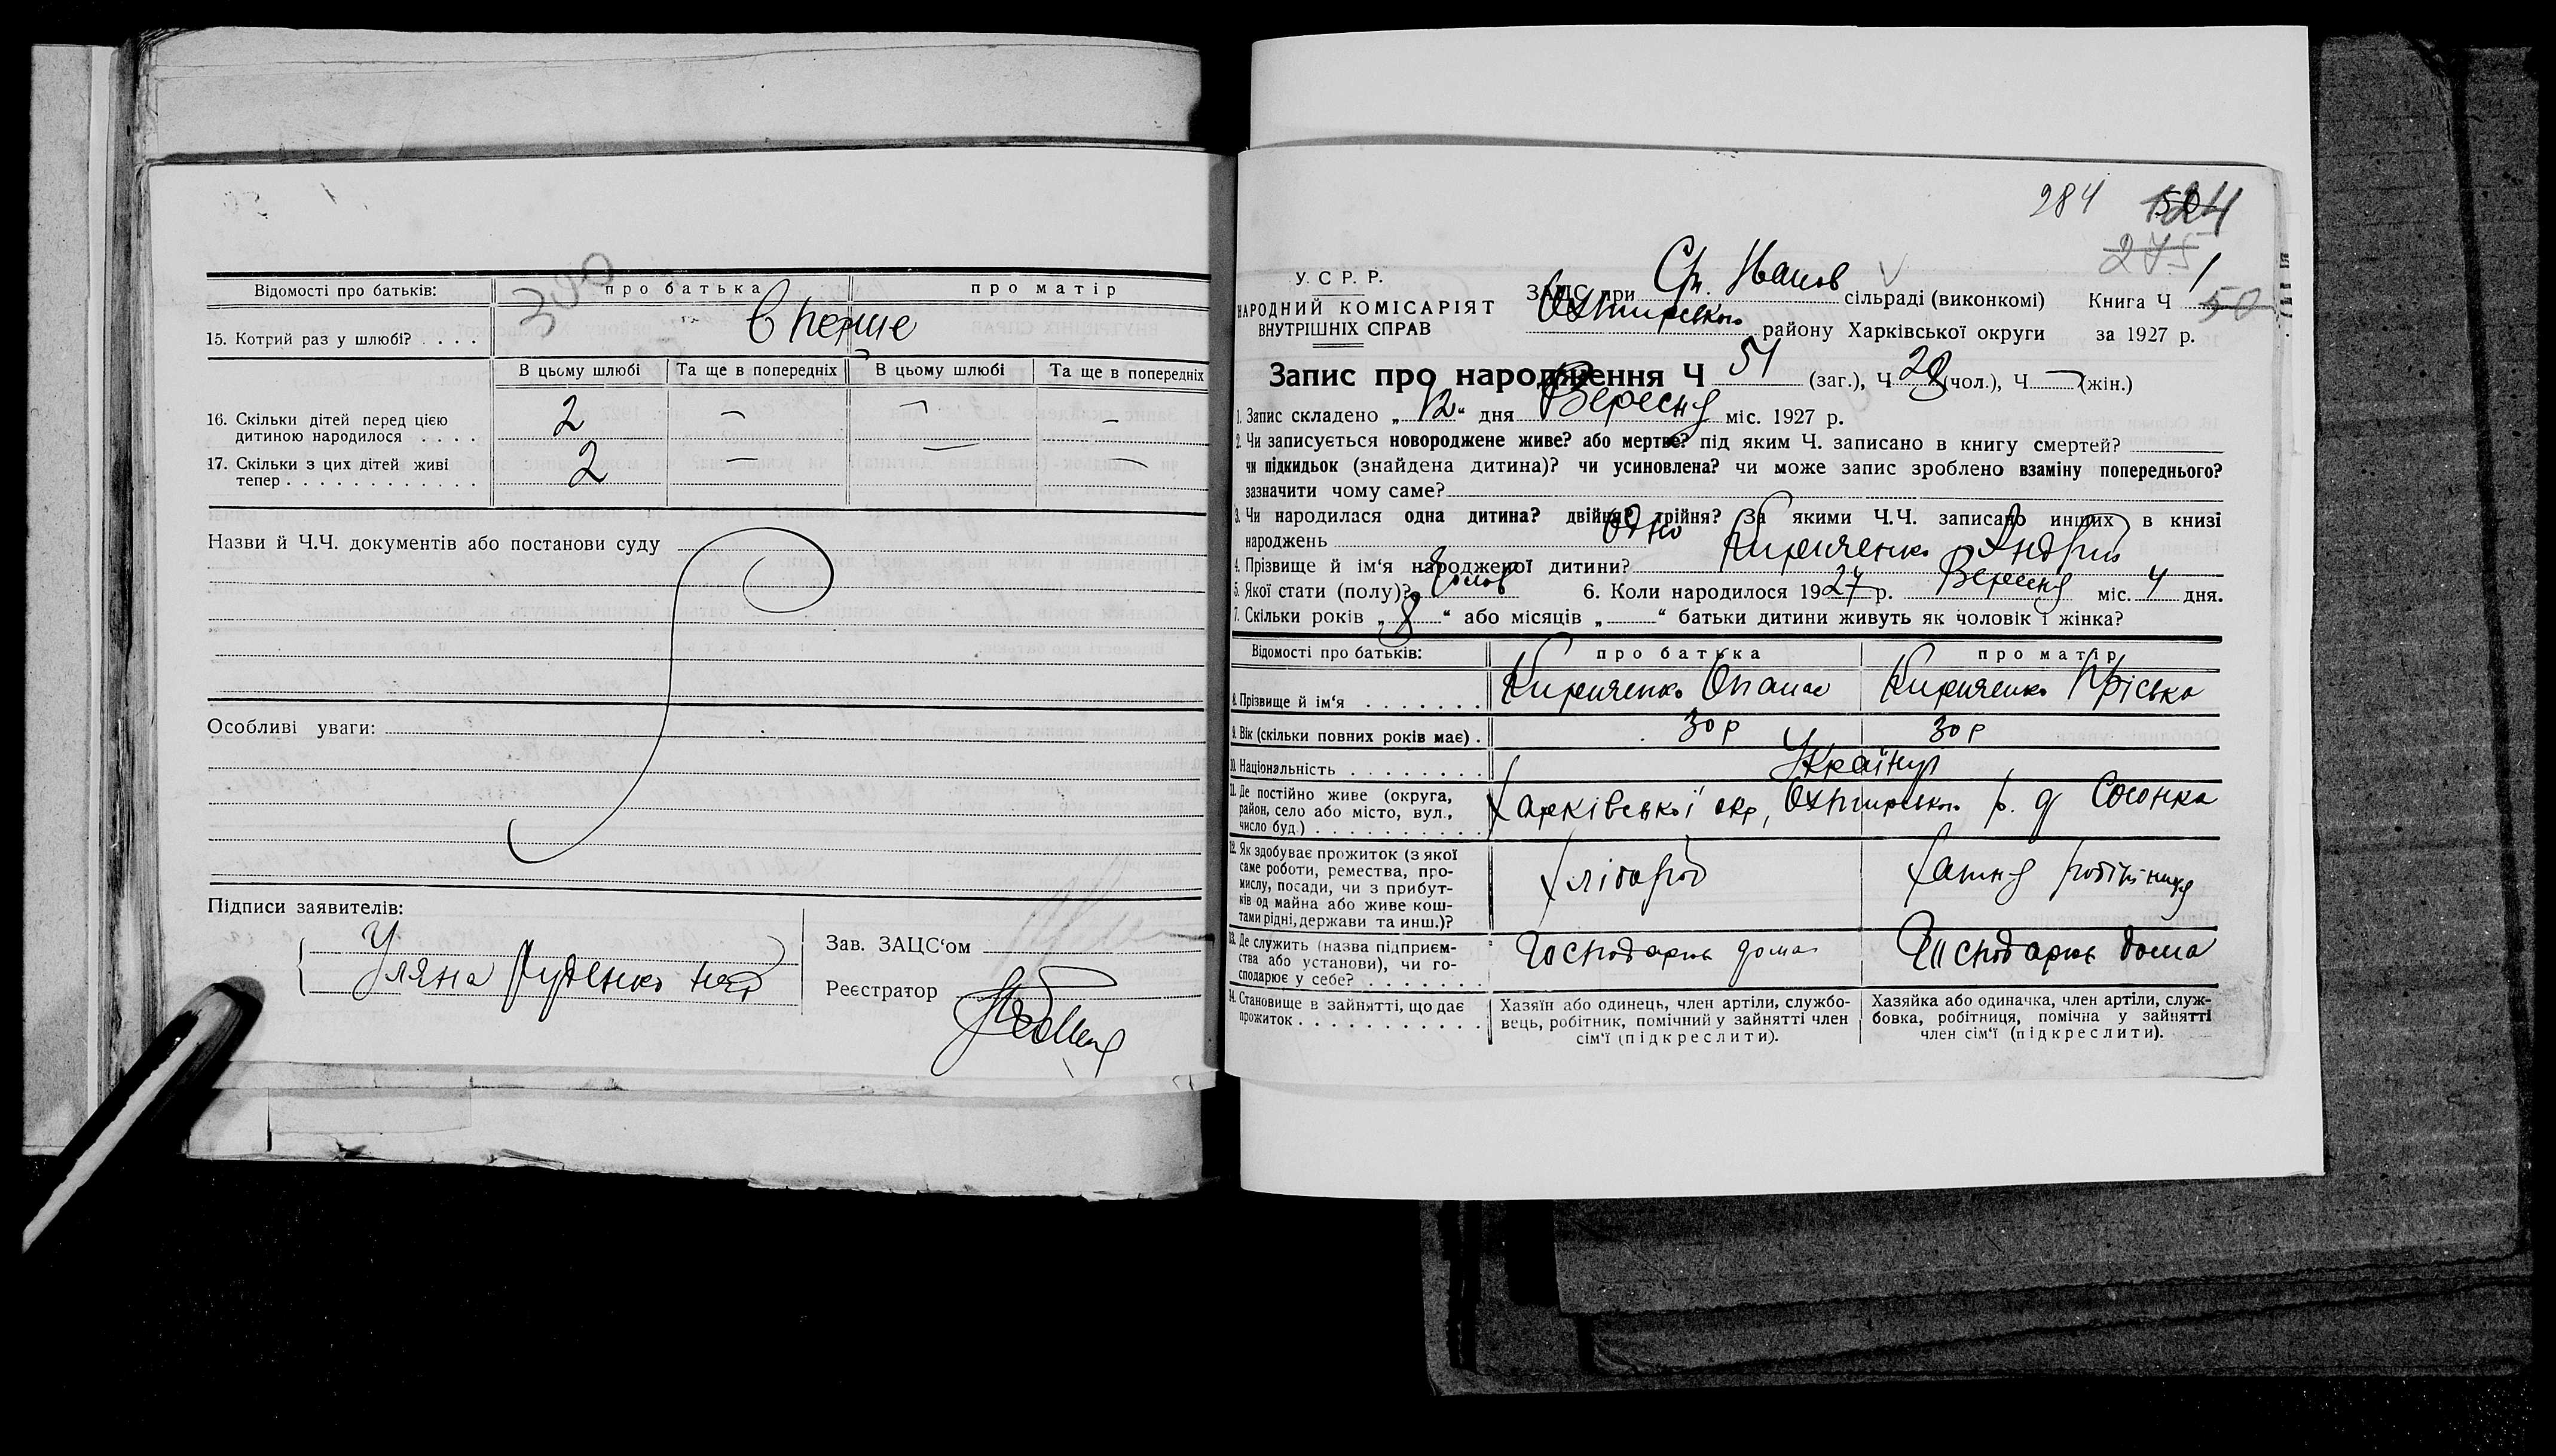 300
Відомості про батьків: про батька про матір
15. Котрий раз у шлюбі? . . . . Вперше
В цьому шлюбі Та ще в попередніх В цьому шлюбі Та ще в попередніх
16. Скільки дітей перед цією
дитиною народилося . . . . 2 — — —
17. Скільки з цих дітей живі
тепер . . . . . . . . . . . . 2 — — —
Назви й Ч.Ч. документів або постанови суду
Особливі уваги:
Підписи заявителів:
Уляна Руденко
Зав. ЗАЦС‘ом
Реєстратор
284 124
275
У. С. Р. Р.
НАРОДНИЙ КОМІСАРІЯТ
ВНУТРІШНІХ СПРАВ
ЗАЦС при Ст. Иванов сільраді (виконкомі) Книга Ч 1 50
Охтирського району Харківської округи за 1927 р.
Запис про народження Ч 51 (заг.), Ч 28 (чол.), Ч — (жін.)
1. Запис складено „ 12 “ дня Вересня міс. 1927 р.
2. Чи записується новороджене живе? або мертве? під яким Ч. записано в книгу смертей?
чи підкидьок (знайдена дитина)? чи усиновлена? чи може запис зроблено взаміну попереднього?
зазначити чому саме?
3. Чи народилася одна дитина? двійня? трійня? За якими Ч.Ч. записано инших в книзі
народжень Одно
4. Прізвище й ім‘я народженої дитини? Кириченко Андрій
5. Якої статі (полу)? чолов 6. Коли народилося 1927 р. Вересня міс. 4 дня.
7. Скільки років „ 8 “ або місяців „ “ батьки дитини живуть як чоловік і жінка?
Відомості про батьків: про батька про матір
8. Прізвище й ім‘я . . . . . . . Кириченко Опанас Кириченко Пріська
9. Вік (скільки повних років має) . 30 р 30 р
10. Національність . . . . . . . .
11. Де постійно живе (округа,
район, село або місто, вул.,
число буд.) . . . . . . . . . . . Харківської окр, Охтирського р. Сосонка
12. Як здобуває прожиток (з якої
саме роботи, ремества, про-
мислу, посади, чи з прибут-
ків од майна або живе кош-
тами рідні, держави та инш.)? Хлібороб Хатня робітниця
13. Де служить (назва підприєм-
ства або установи), чи го-
сподарює у себе? . . . . . . . Господарює дома Господарює дома
14. Становище в зайнятті, що дає
прожиток . . . . . . . . . . . .
Хазяїн або одинець, член артіли, службо-
вець, робітник, помічний у зайнятті член
сім‘ї (підкреслити).
Хазяйка або одиначка, член артіли, служ-
бовка, робітниця, помічна у зайнятті
член сім‘ї (підкреслити).